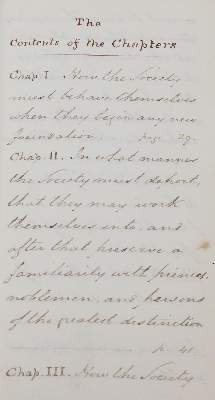 The
Contents of the Chapters
Chap. I. How the Society
must behave themselves
when they begin any new
foundation. Pag. 29.
Chap. II. In what manner
the Society must deport,
that they may work
themselves into, and
after that preserve a
familiarity with princes,
noblemen, and persons
of the greatest distinction
p. 41
Chap. III. How the Society